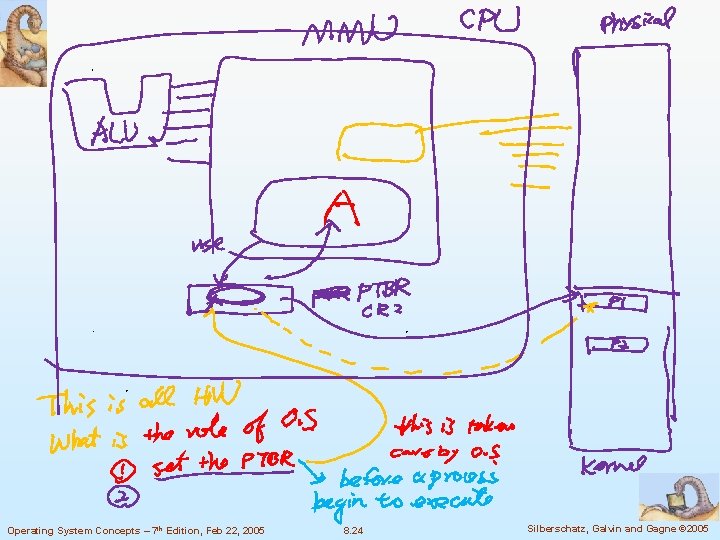 MMU
CPU
Physical
ALU
A
use
PTBR
CR3
P1
P2
This is all HW
What is the role of O.S
① set the PTBR
②
this is taken
care by O.S
before a process
begin to execute
Kernel
Operating System Concepts – 7th Edition, Feb 22, 2005
8.24
Silberschatz, Galvin and Gagne ©2005